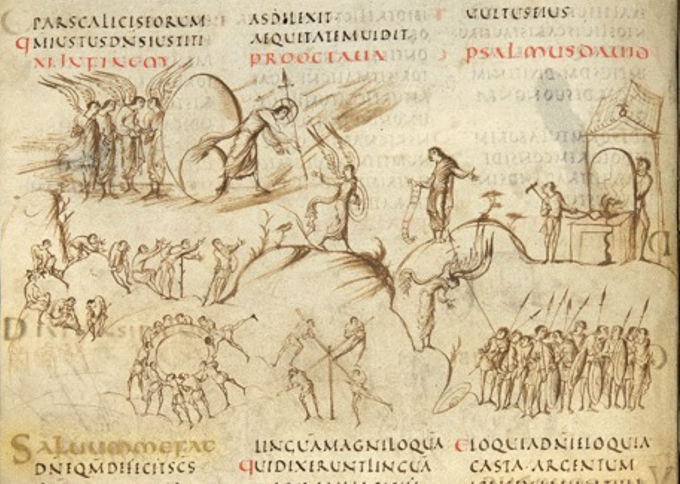 PARSCALICISEORUM
QMIUSTUSDNSIUSTITI
XI INFINEM
ASDILEXIT
AEQUITATEMUIDIT
PROOCTAUA
UULTUSEIUS
PSALMUSDAUID
SALUUMMEFAC
DNEQMDEFECITSCS
LINGUĀMAGNILOQUĀ
QUIDIXERUNTLINGUĀ
ELOQUIADNIELOQUIA
CASTA·ARGENTUM